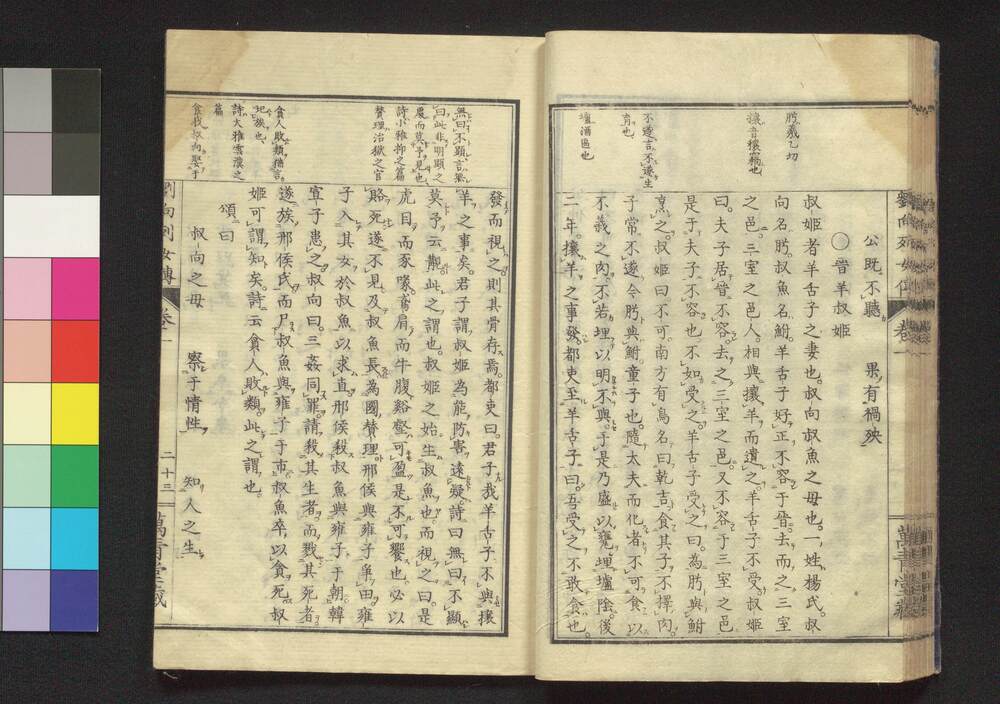 公既不聽　果有禍殃
〇晉羊叔姬
叔姬者羊舌子之妻也。叔向叔魚之母也。一姓楊氏。叔
向名肸。叔魚名鮒。羊舌子好正不容于晉。去而之三室
之邑。三室之邑人。相與攘羊而遺之。羊舌子不受。叔姬
曰。夫子居晉不容。去之三室之邑。又不容于三室之邑
是于夫子不容也。不如受之。羊舌子受之曰。為肸與鮒
烹之。叔姬曰不可。南方有鳥名曰乾吉。食其子不擇肉。
子常不遂。今肸與鮒童子也。隨大夫而化者。不可食以
不義之肉。不若埋以明不與。于是乃盛以甕埋壚陰。後
二年。攘羊之事發。都吏至。羊舌子曰。吾受之不敢食也。
肸羲乙切
攘音穰竊也
不遂言不遂生
育也
壚酒區也
發而視之。則其骨存焉。都吏曰。君子哉羊舌子。不與攘
羊之事矣。君子謂。叔姬為能防害遠疑。詩曰無曰不顯
莫予云覯。此之謂也。叔姬之始生叔魚也。而視之曰。是
虎目而豕喙。鳶肩而牛腹。谿壑可盈。是不可饜也。必以
賂死。遂不見。及叔魚長為國贊理。邢侯與雍子爭田。雍
子入其女於叔魚以求直。邢侯殺叔魚與雍子于朝。韓
宣子患之。叔向曰。三姦同罪。請殺其生者而戮其死者。
遂族邢侯氏。而尸叔魚與雍子于市。叔魚卒以貪死。叔
姬可謂知矣。詩云貪人敗類。此之謂也。
頌曰
叔向之母　察于情性　知人之生
無曰不顯言莫
曰此非明顯之
處而莫予見也
詩小雅抑之篇
贊理治獄之官
貪人敗類猶言
圮族也
詩大雅雲漢之
篇
劉向列女傳　卷一　二十三　萬青堂藏